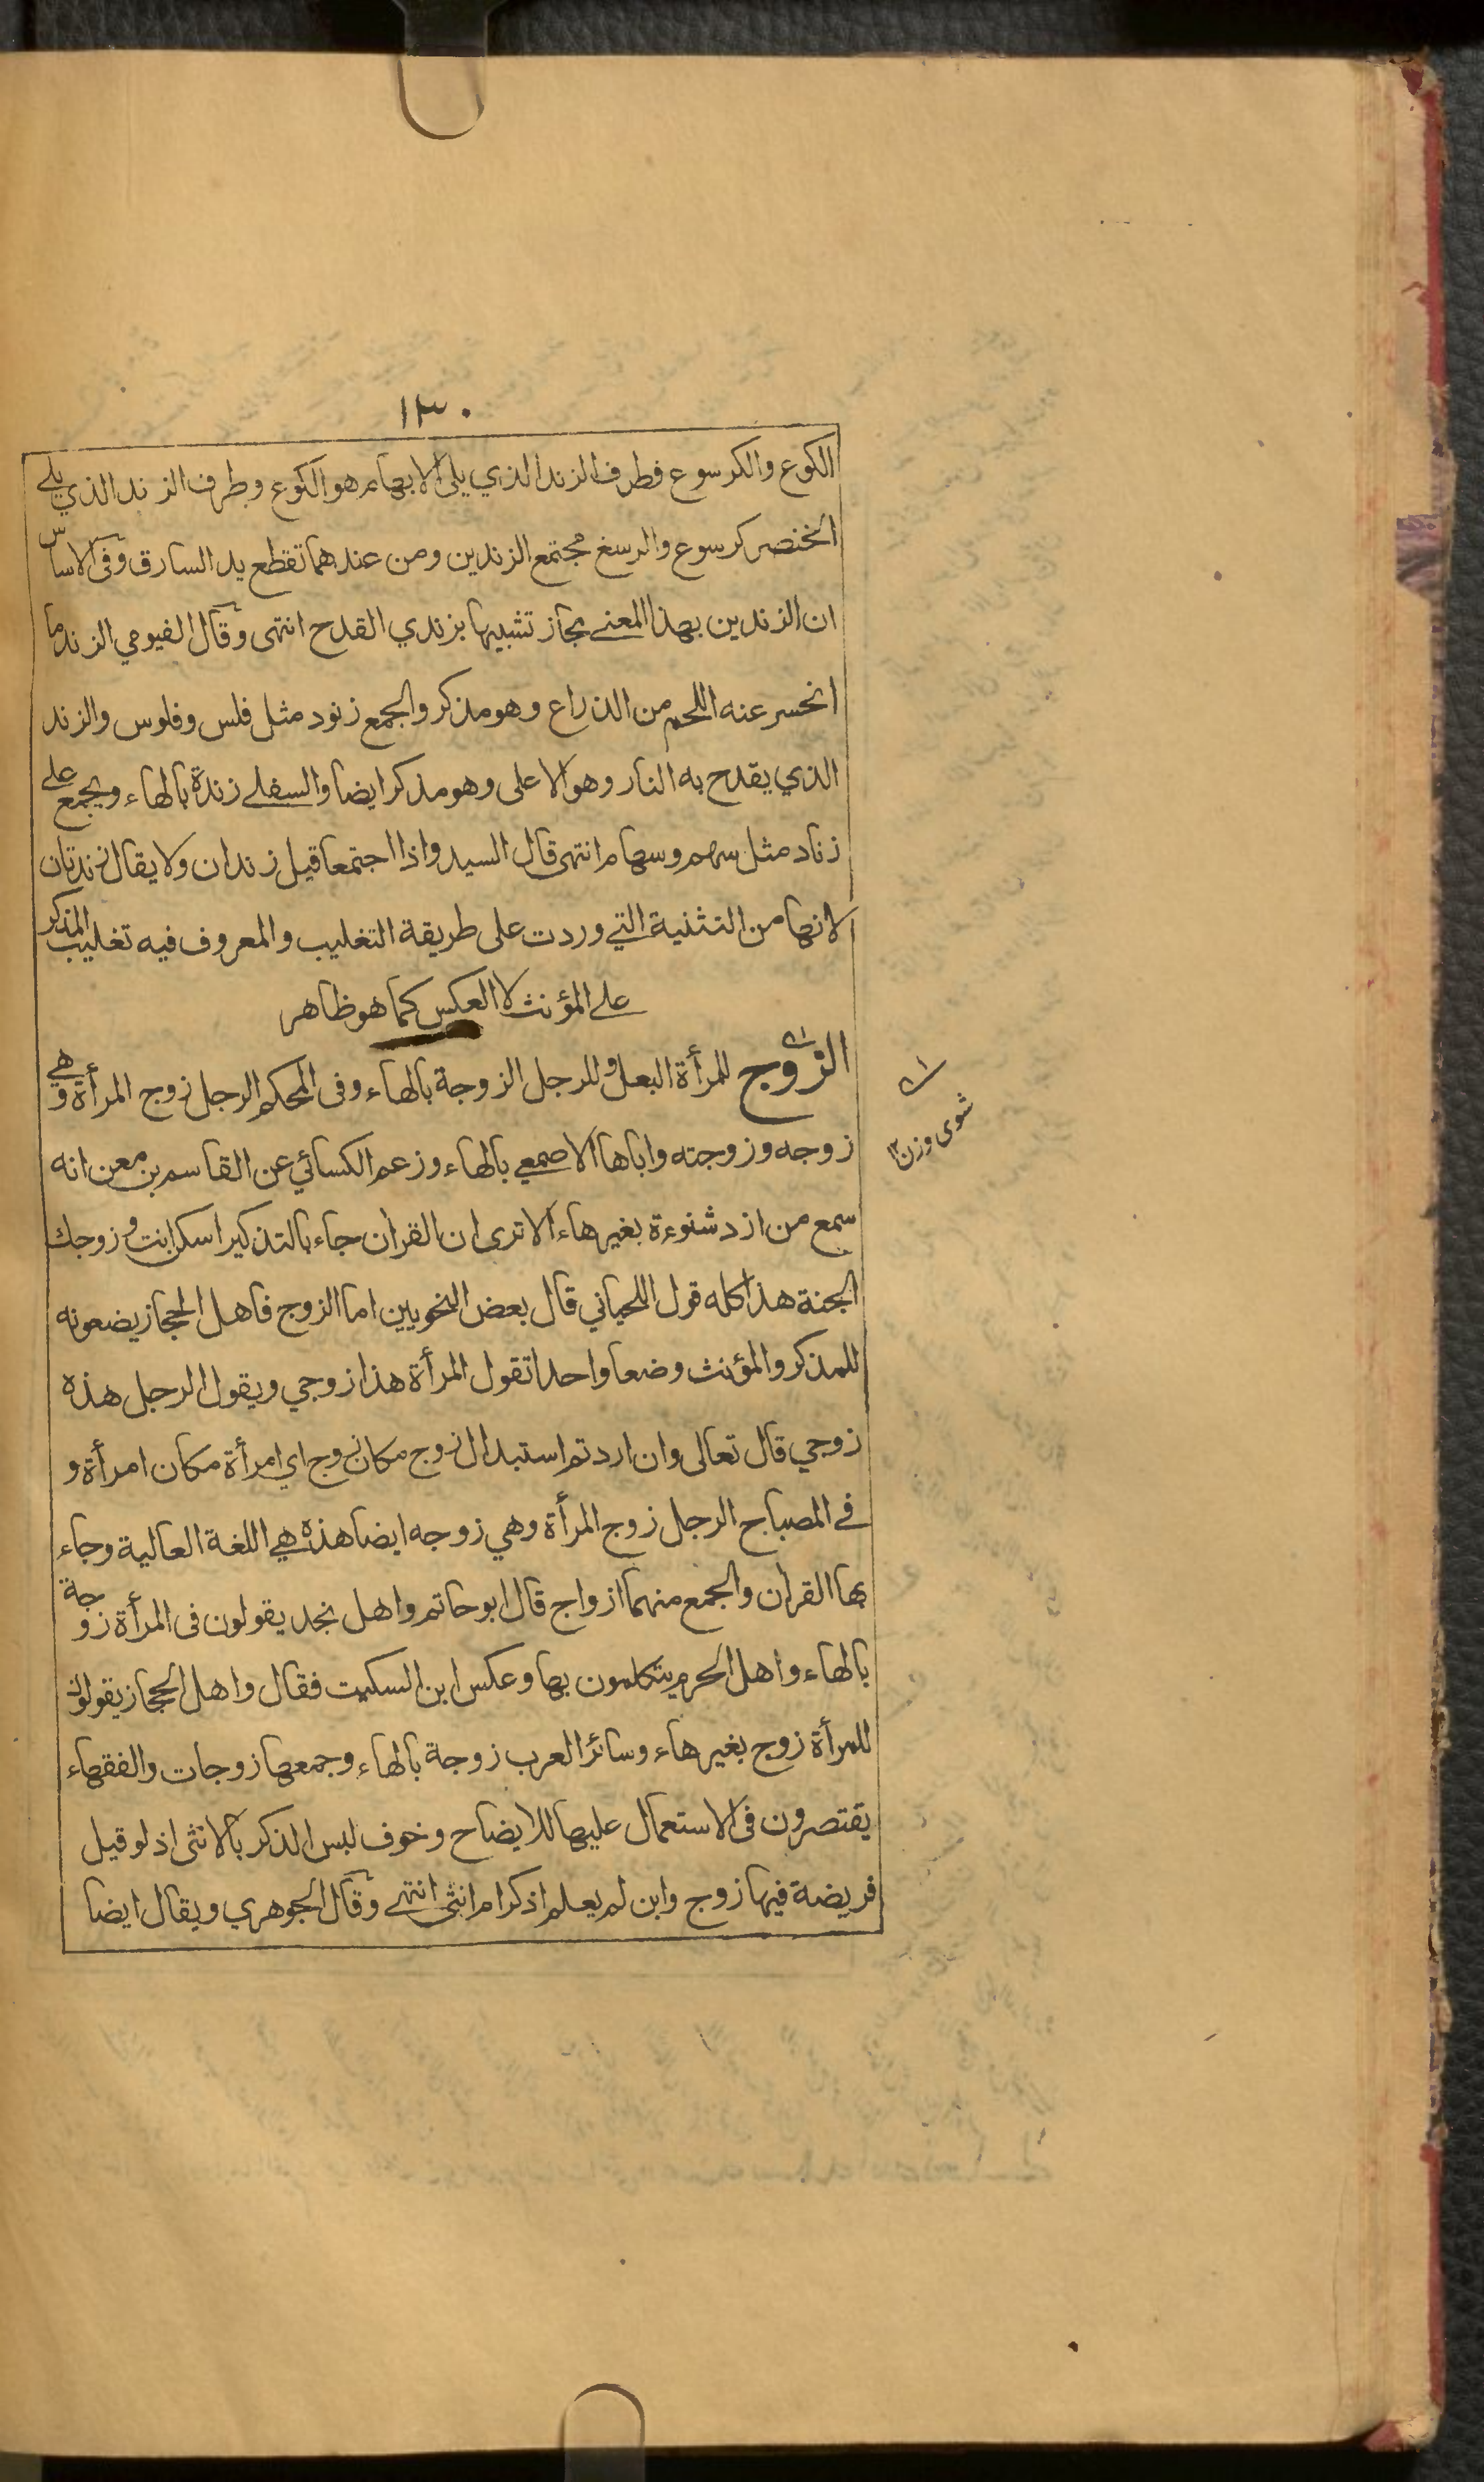 ١٣٠
الكوع والكرسوع فطرف الزند الذي يلى الابهام هو الكوع وطرف الزند الذي يلے
الخنصر كرسوع والرسغ مجتمع الزندين ومن عندهما تقطع يد السارق وفى الاساس
ان الزندين بهذا المعنے مجاز تشبيها بزندي القدح انتهى وقال الفيومي الزند ما
انحسر عنه اللحم من الذراع وهو مذكر والجمع زنود مثل فلس وفلوس والزند
الذي يقدح به النار وهو الاعلى وهو مذكر ايضا والسفلے زندة بالهاء ويجمع علے
زناد مثل سهم وسهام انتهى قال السيد واذا اجتمعا قيل زندان ولا يقال زندتان
لانها من التثنية التي وردت على طريقة التغليب والمعروف فيه تغليب المذكر
علے المؤنث لا العكس كما هو ظاهر
الزوج للمرأة البعل وللرجل الزوجة بالهاء وفى المحكم الرجل زوج المرأة وهے
زوجه وزوجته واباها الاصمعي بالهاء وزعم الكسائي عن القاسم بن معن انه
سمع من ازد شنوءة بغير هاء الا ترى ان القران جاء بالتذكير اسكن انت وزوجك
الجنة هذا كله قول اللحياني قال بعض النحويين اما الزوج فاهل الحجاز يضعونه
للمذكر والمؤنث وضعا واحدا تقول المرأة هذا زوجي ويقول الرجل هذه
زوجي قال تعالى وان اردتم استبدال زوج مكان زوج اي امرأة مكان امرأة و
فے المصباح الرجل زوج المرأة وهي زوجه ايضا هذه هي اللغة العالية وجاء
بها القران والجمع منهما ازواج قال ابو حاتم واهل نجد يقولون فى المرأة زوجة
بالهاء واهل الحرم يتكلمون بها وعكس ابن السكيت فقال واهل الحجاز يقولون
للمرأة زوج بغير هاء وسائر العرب زوجة بالهاء وجمعها زوجات والفقهاء
يقتصرون فى الاستعمال عليها للايضاح وخوف لبس الذكر بالانثى اذ لو قيل
فريضة فيها زوج وابن لم يعلم اذكر ام انثى انتهے وقال الجوهري ويقال ايضا
شوى وزن